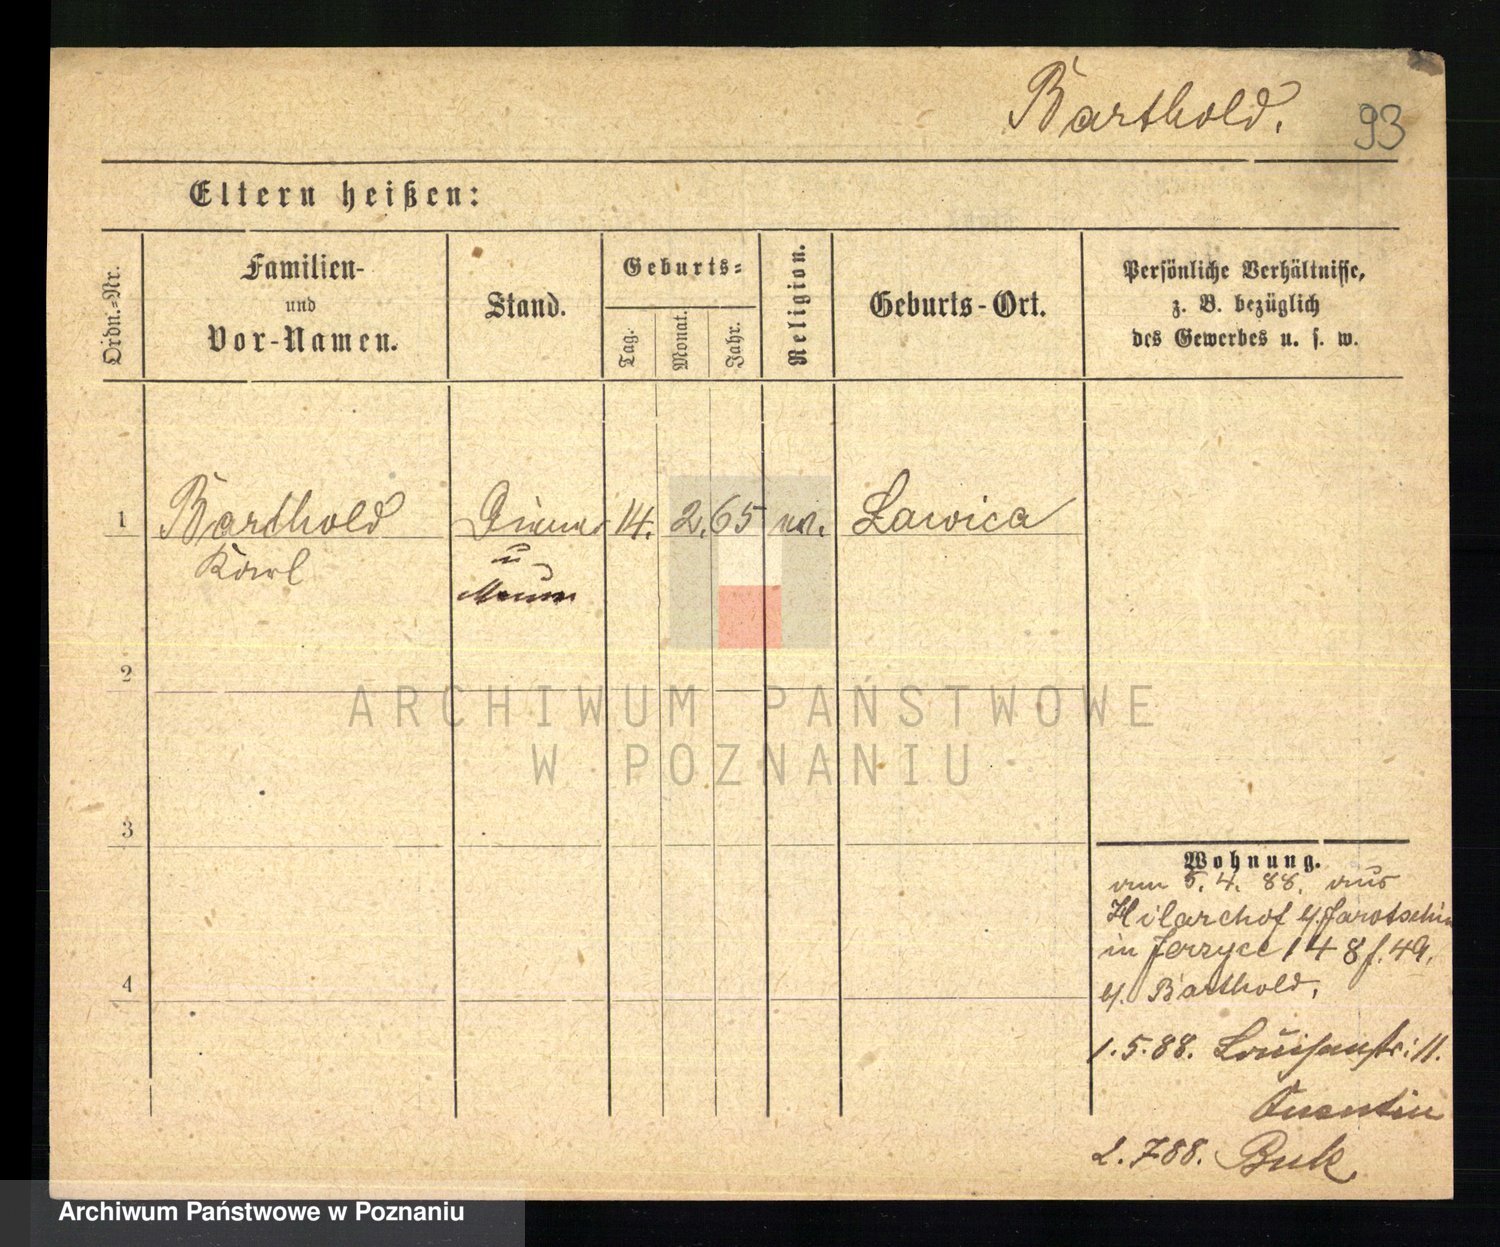 Barthold.
93
Eltern heißen:
Ordn.-Nr.
Familien-
und
Vor-Namen.
Stand.
Geburts-
Tag.
Monat.
Jahr.
Religion.
Geburts-Ort.
Persönliche Verhältnisse,
z. B. bezüglich
des Gewerbes u. s. w.
1 Barthold Diener 14. 2. 65 ev. Lawica
Karl
u
2
3
4
Wohnung.
am 5. 4. 88. aus
Hilarchof b/Jarotschin
in Jerzyce 148 f. 49.
b/. Barthold.
1.5.88. Louisenstr. 11.
Quentin
2.7.88. Buk
ARCHIWUM PAŃSTWOWE
W POZNANIU
Archiwum Państwowe w Poznaniu